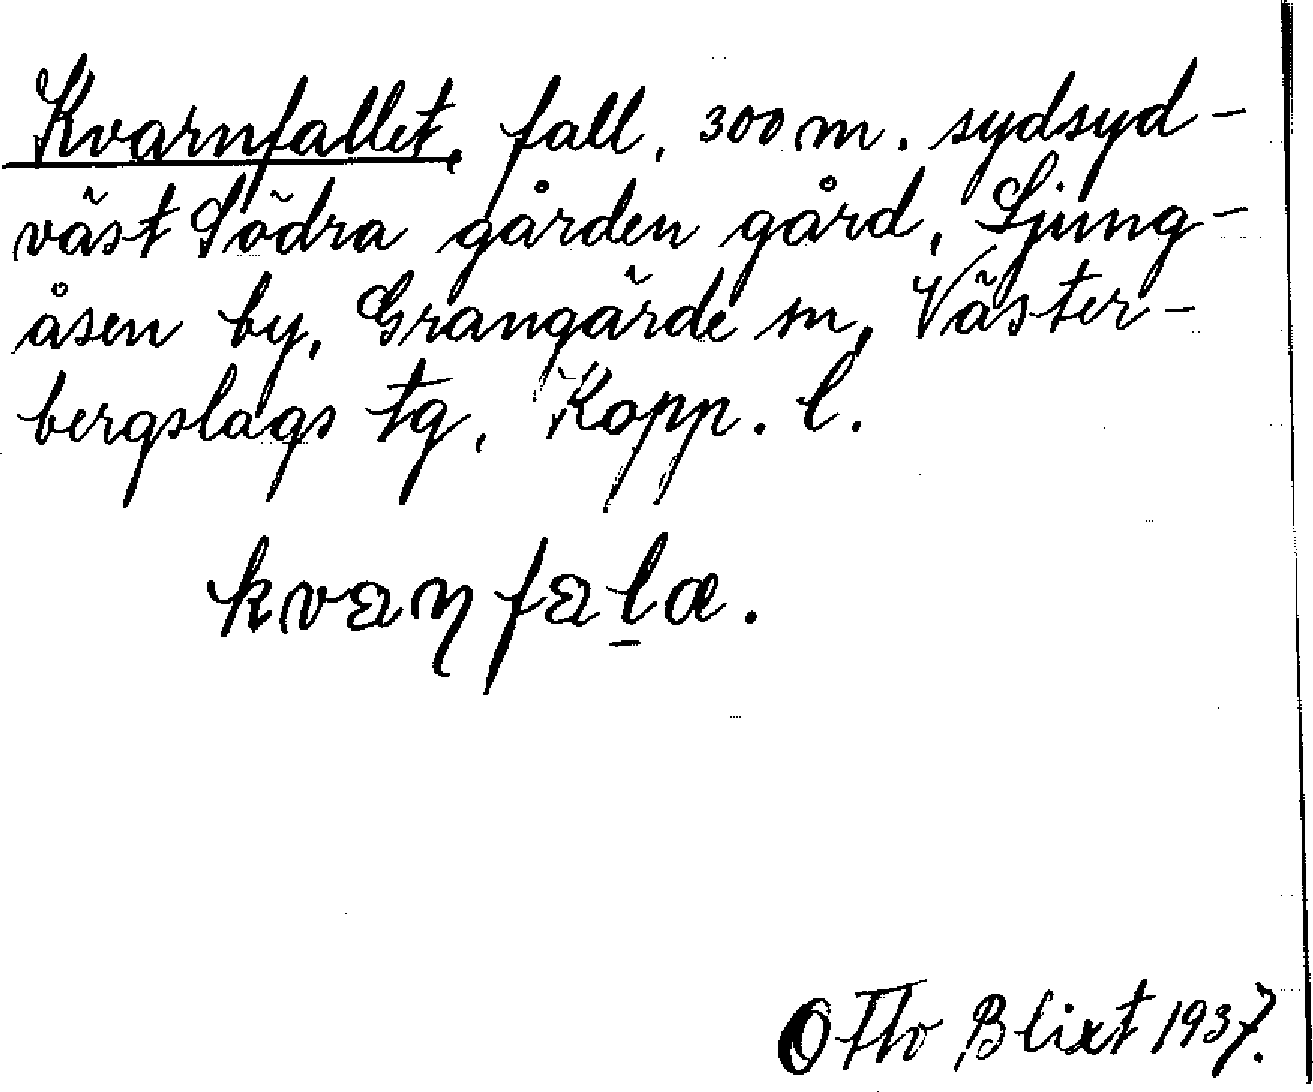 Kvarnfallet, fall, 300 m. sydsyd-
väst Södra gården gård, Ljung-
åsen by, Grangärde sn, Väster-
bergslags tg, Kopp. l.
kvaɳfal̠a.
Otto Blixt 1937.